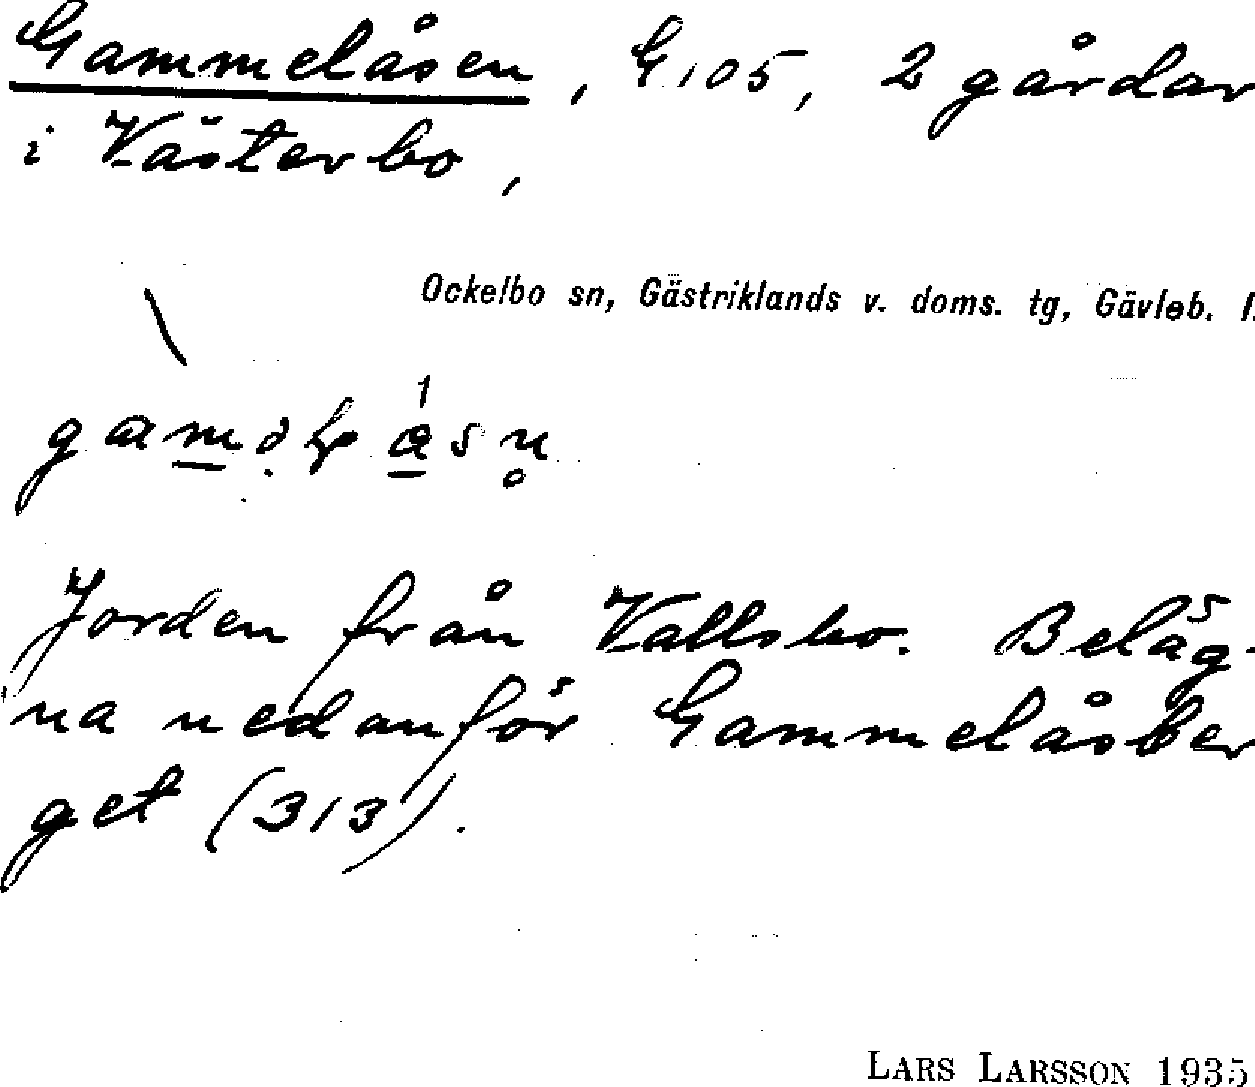 Gammelåsen, G.105, 2 gårdar
i Västerbo,
Ockelbo sn, Gästriklands v. doms. tg, Gävleb. l.
Jorden från Vallsbo. Beläg-
na nedanför Gammelåsber
get (313).
LARS LARSSON 1935